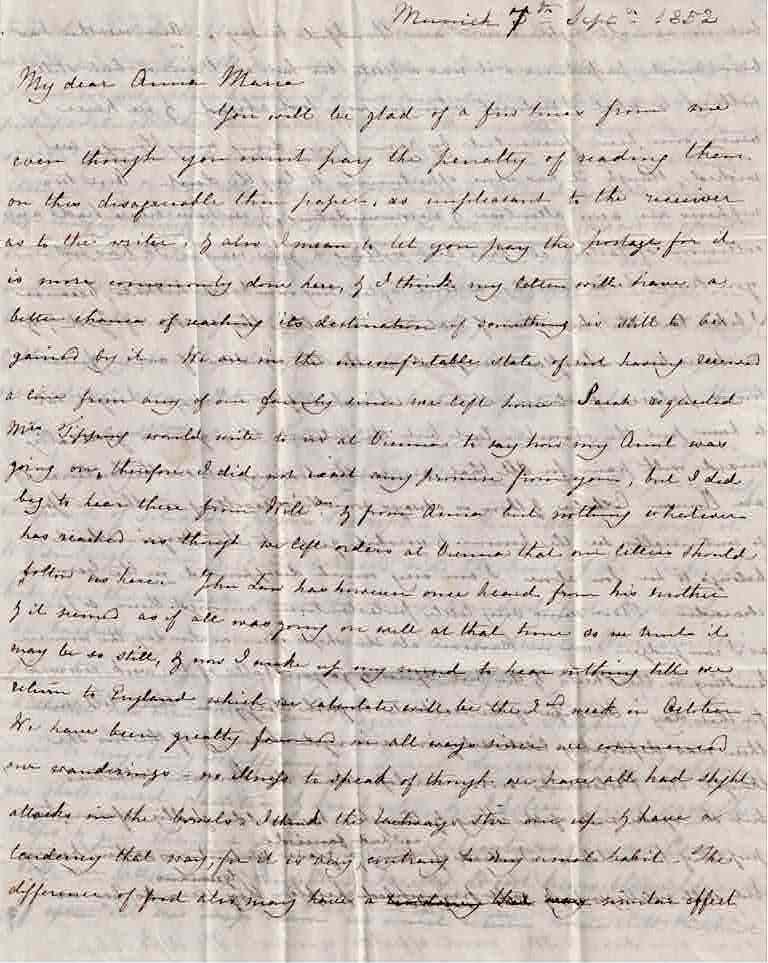 Munich 7th Septr 1852
My dear Anna Maria
You will be glad of a few lines from me
even though you must pay the penalty of reading them
on this disagreeable thin paper, as unpleasant to the receiver
as to the writer, & also I mean to let you pay the postage, for it
is more commonly done here, & I think my letter will have a
better chance of reaching its destination if something is still to be
gained by it. We are in the uncomfortable state of not having received
a line from any of our family since we left home. Sarah requested
Mrs Tipping would write to us at Vienna to say how my Aunt was
going on, therefore I did not exact any promise from you, but I did
beg to hear there from Willm & from Anna but nothing whatever
has reached us though we left orders at Vienna that our letters should
follow us here. John Law has however once heard from his mother
& it seemed as if all was going on well at that time so we trust it
may be so still, & now I make up my mind to hear nothing till we
return to England which we calculate will be the 2nd week in October -
We have been greatly favored in all ways since we commenced
our wanderings - no illness to speak of though we have all had slight
attacks in the bowels, I think the railways stir one up & have a
tendency that way, for it is very contrary to my usual habit - The
difference of food also may have a tendency that way similar effect